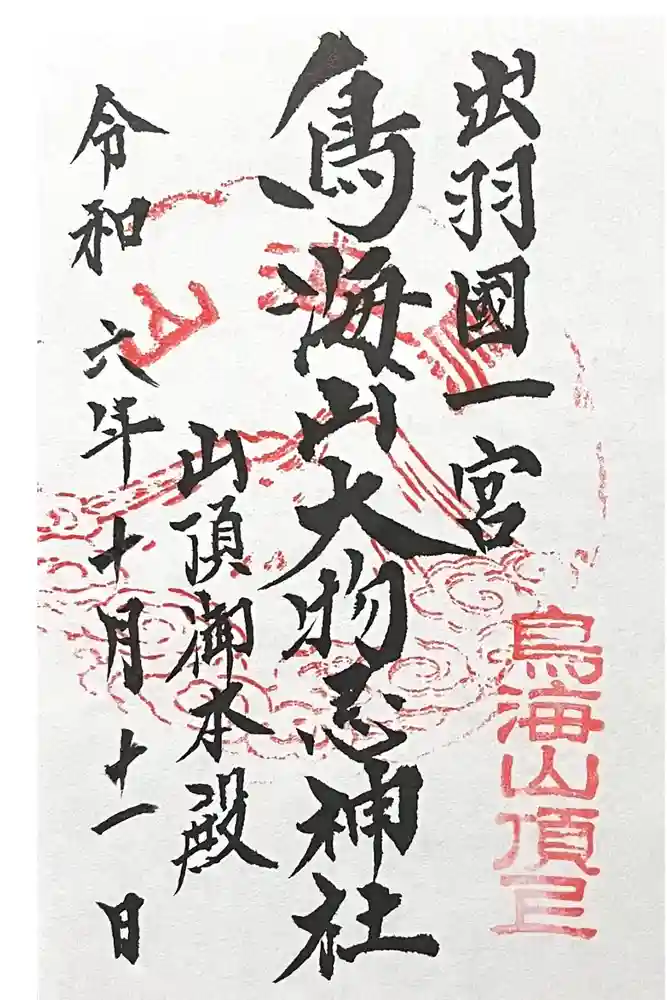 出羽國一宮
鳥海山大物忌神社
山頂御本殿
令和六年十月十一日
鳥海山
鳥海山頂